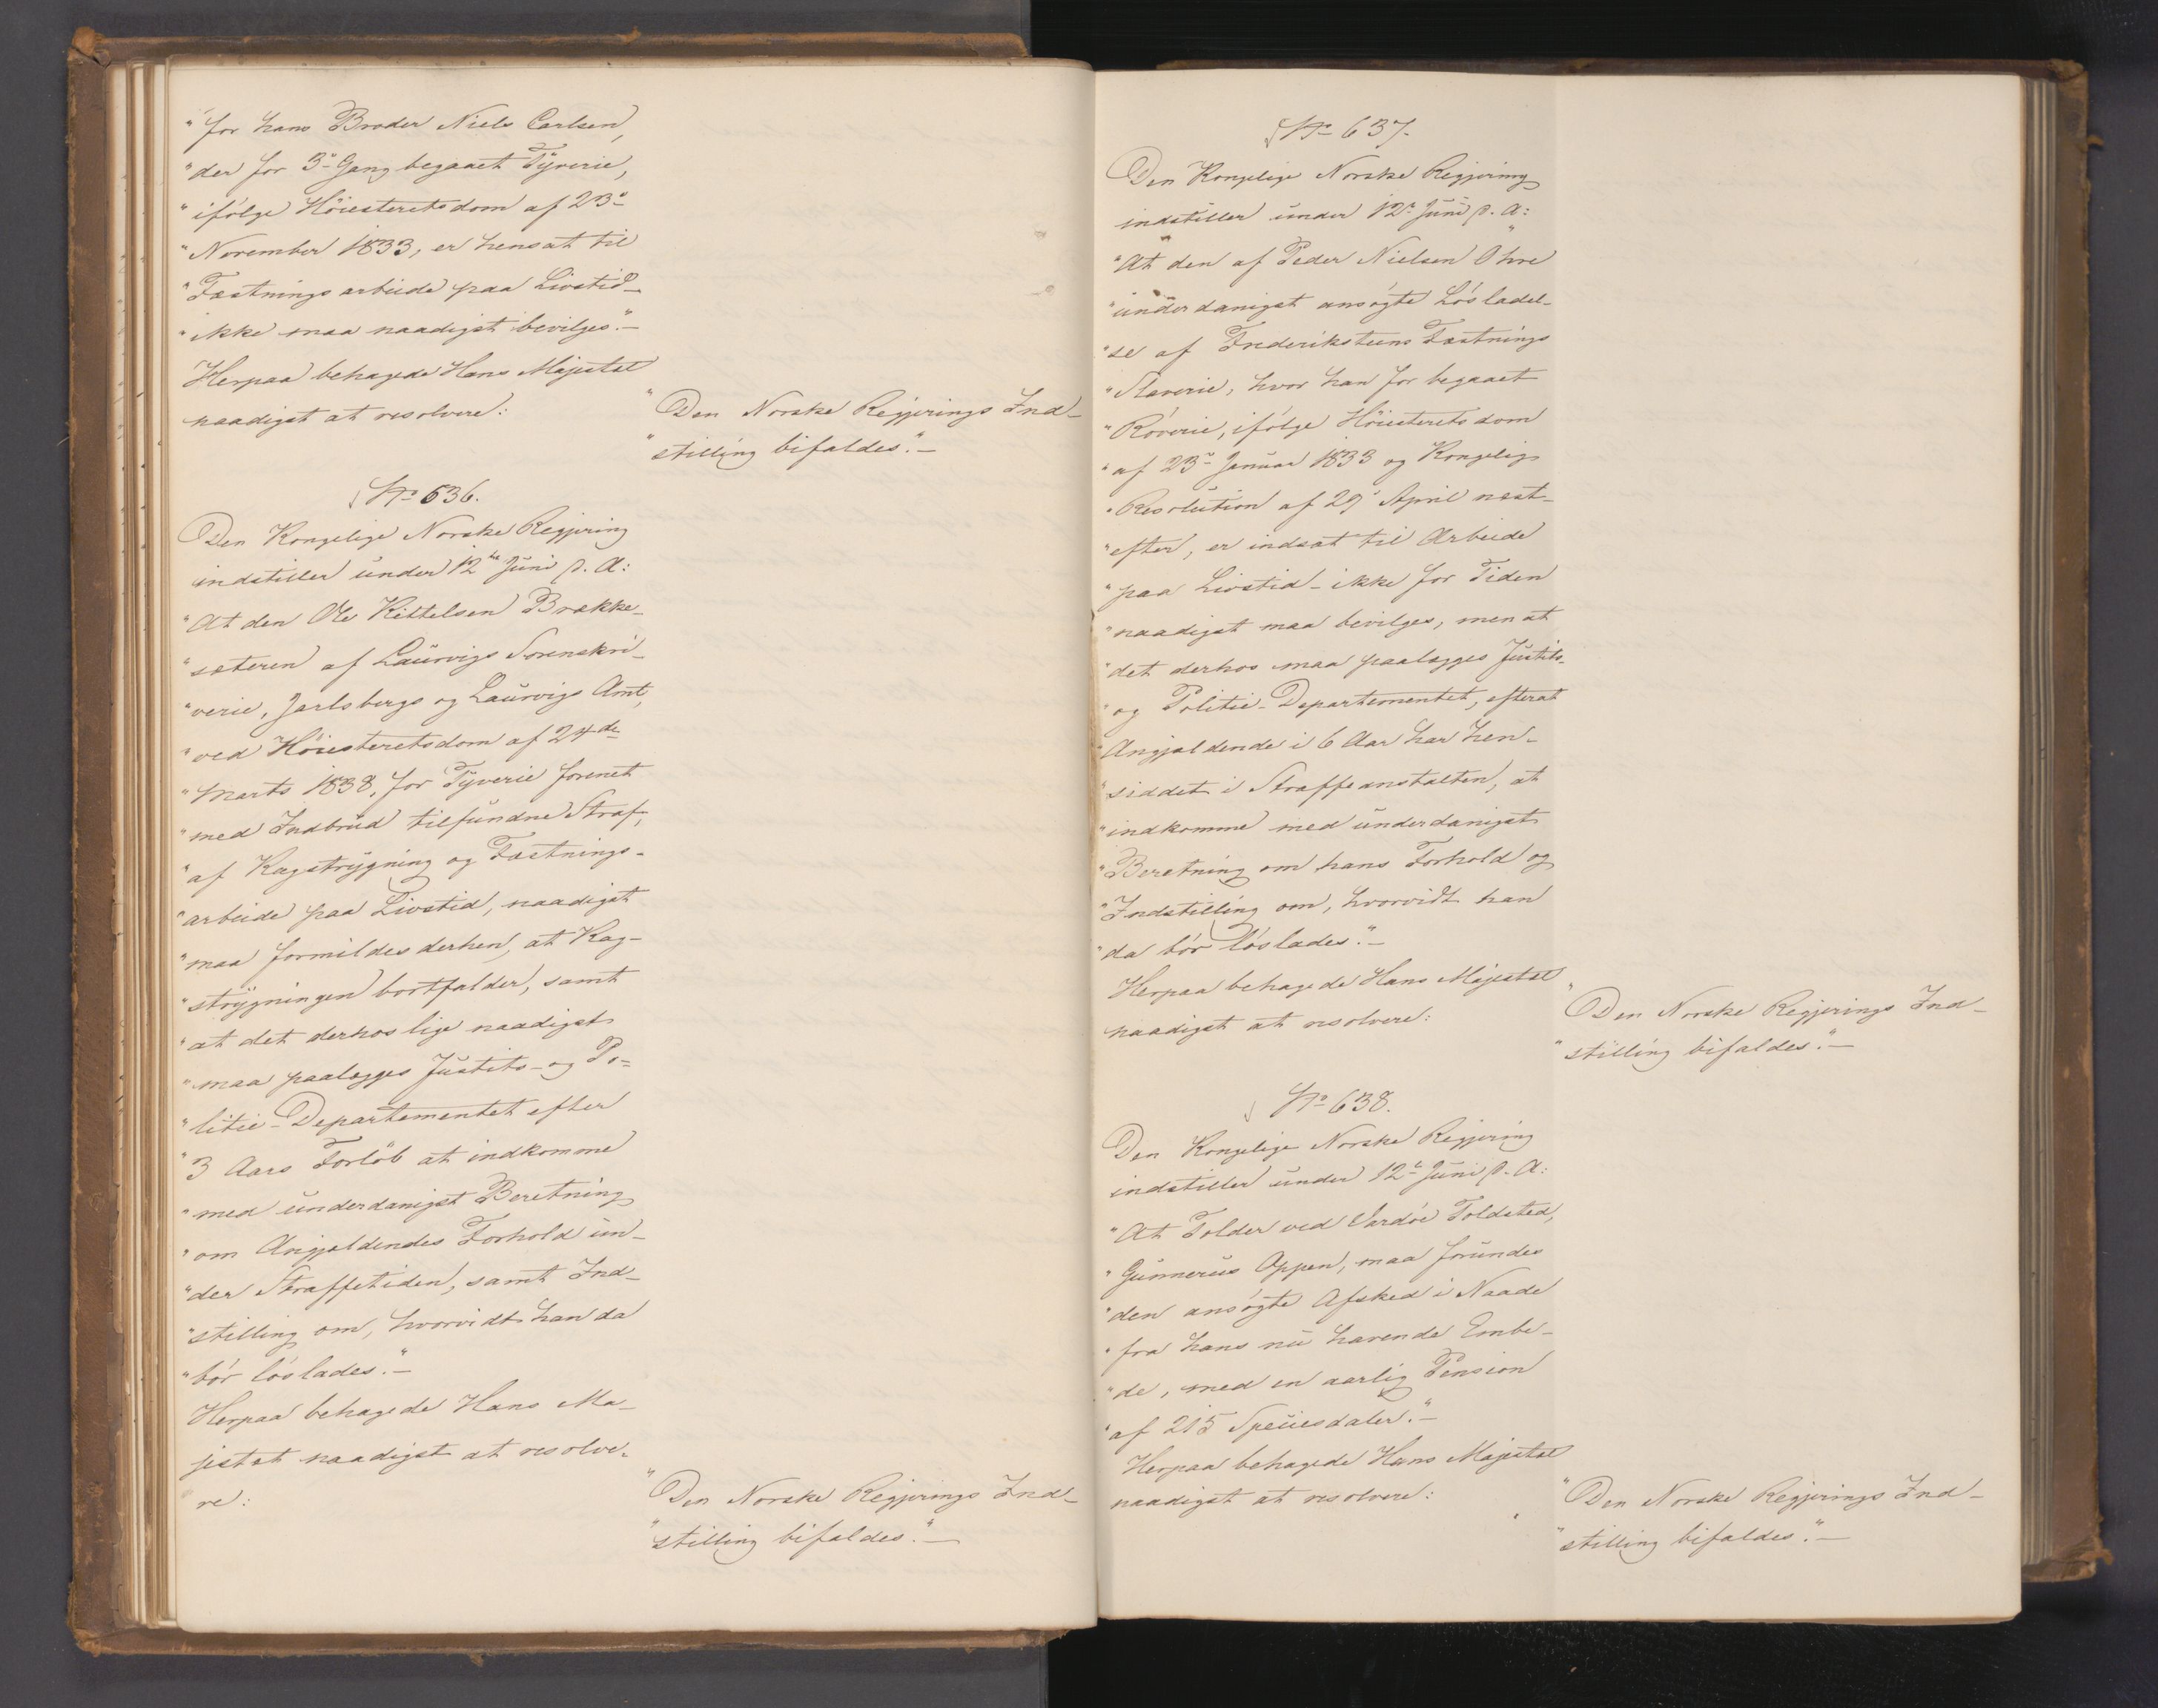 "for hans Broder Niels Carlsen,
"der for 3de Gang begaaet Tÿverie,
"ifölge Höiesteretsdom af 23de
"November 1833, er hensat til
"Fæstningsarbeide paa Livstid_
"ikke maa naadigst bevilges."_
Herpaa behagede Hans Majestæt
naadigst at resolvere:
"Den Norske Regjerings Ind_
"stilling bifaldes."_
No 636.
Den Kongelige Norske Regjering
indstiller under 12te Juni d. A:
"At den Ole Kittelsen Brække_
"sæteren af Laurvigs Sorenskri_
"verie, Jarlsbergs og Laurvigs Amt,
"ved Höiesteretsdom af 24de
"Marts 1838, for Tÿverie forenet
"med Indbrud tilfundne Straf,
"af Kagstrÿgning og Fæstnings_
"arbeide paa Livstid, naadigst
"maa formildes derhen, at Kag_
"strÿgningen bortfalder, samt
"at det derhos lige naadigst
"maa paalægges Justits_ og Po=
"litie_Departementet efter
"3 Aars Forlöb at indkomme
"med underdanigst Beretning
"om Angjældendes Forhold un_
"der Straffetiden, samt Ind_
"stilling om, hvorvidt han da
"bör löslades."_
Herpaa behagede Hans Ma_
jestæt naadigst at resolve_
re:
"Den Norske Regjerings Ind_
"stilling bifaldes."_
No 637.
Den Kongelige Norske Regjering
indstiller under 12te Juni d. A:
"At den af Peder Nielsen Ohre
"underdanigst ansögte Lösladel_
"se af Frederiksteens Fæstnings
"Slaverie, hvor han for begaaet
"Röverie, ifölge Höiesterets dom
"af 23de Januar 1833 og Kongelig
"Resolution af 29 April næst_
"efter, er indsat til Arbeide
"paa Livstid_ikke for Tiden
"naadigst maa bevilges, men at
"det derhos maa paalægges Justits_
"og Politie_Departementet, efterat
"Angjældende i 6 Aar har hen_
"siddet i Straffeanstalten, at
"indkomme med underdanigst
"Beretning om hans Forhold og
"Indstilling om, hvorvidt han
"da bör löslades."_
Herpaa behagede Hans Majestæt
naadigst at resolvere:
"Den Norske Regjerings Ind_
"stilling bifaldes."_
No 638.
Den Kongelige Norske Regjering
indstiller under 12te Juni d. A:
"At Tolder ved Vardöe Toldsted,
"Gunnerus Appen, maa forundes
"den ansögte Afsked i Naade
"fra hans nu havende Embe_
"de, med en aarlig Pension
"af 215 Speciesdaler."_
Herpaa behagede Hans Majestæt
naadigst at resolvere:
"Den Norske Regjerings Ind_
"stilling bifaldes."_